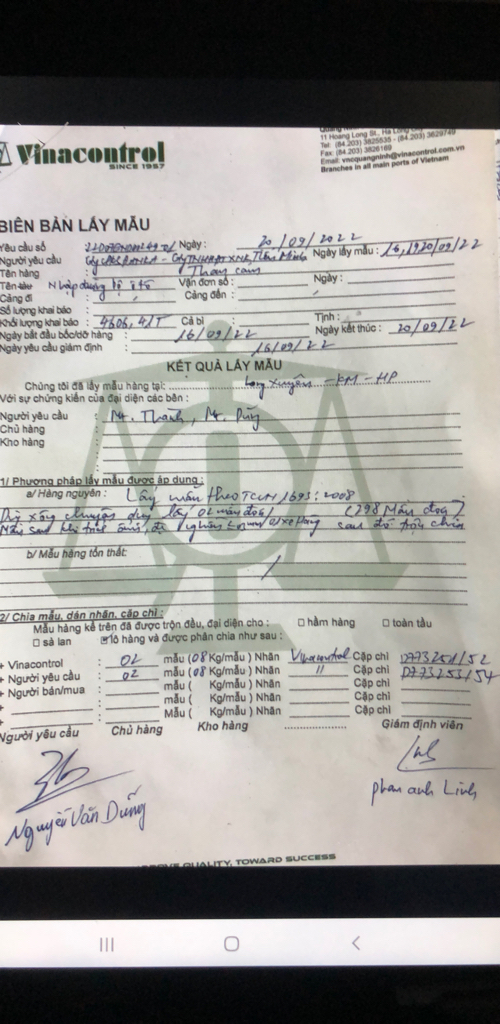 Vinacontrol
SINCE 1957
11 Hoang Long St., Ha Long
Tel: (84.203) 3825535 - (84.203) 3629749
Fax: (84.203) 3826169
Email: vncquangninh@vinacontrol.com.vn
Branches in all main ports of Vietnam
BIÊN BẢN LẤY MẪU
Yêu cầu số Ngày : 20/09/2022
Người yêu cầu Ngày lấy mẫu : 16,19,20/09/22
Tên hàng : Than cám
Tên tàu Nhập dùng Vận đơn số : Ngày :
Cảng đi : Cảng đến :
Số lượng khai báo :
Khối lượng khai báo : 4606,4/T Cả bì : Tịnh :
Ngày bắt đầu bốc/dỡ hàng : 16/09/22 Ngày kết thúc : 20/09/22
Ngày yêu cầu giám định : 16/09/22
KẾT QUẢ LẤY MẪU
Chúng tôi đã lấy mẫu hàng tại: Xuyên - KM - HP
Với sự chứng kiến của đại diện các bên :
Người yêu cầu : Mr. Thanh, Mr. Dũng
Chủ hàng :
Kho hàng :
1/ Phương pháp lấy mẫu được áp dụng :
a/ Hàng nguyên : Lấy mẫu theo TCVN 1693:2008
lấy 02 mẫu (298 Mẫu
sau đó trộn chia
b/ Mẫu hàng tổn thất:
2/ Chia mẫu, dán nhãn, cấp chì :
Mẫu hàng kể trên đã được trộn đều, đại diện cho : □ hầm hàng □ toàn tầu
□ sà lan ☑ lô hàng và được phân chia như sau :
+ Vinacontrol : 02 mẫu (08 Kg/mẫu ) Nhãn Vinacontrol Cặp chì D773251/52
+ Người yêu cầu : 02 mẫu (08 Kg/mẫu ) Nhãn " Cặp chì D773253/54
+ Người bán/mua : mẫu ( Kg/mẫu ) Nhãn Cặp chì
+ : mẫu ( Kg/mẫu ) Nhãn Cặp chì
+ : Mẫu ( Kg/mẫu ) Nhãn Cặp chì
Người yêu cầu Chủ hàng Kho hàng Giám định viên
Nguyễn Văn Dũng
phan anh Linh
ABOVE QUALITY, TOWARD SUCCESS